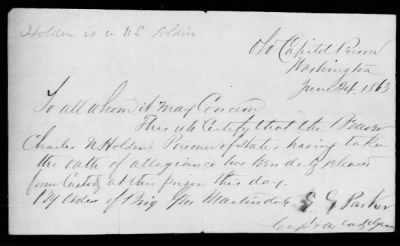 Holden is a US Soldier
Old Capitol Prison
Washington
June 24. 1863
To all whom it may Concern
This is to Certify that the Bearer
Charles N Holden Prisoner of State having taken
the oath of allegiance has been duly released
from Custody at this prison this day.
By Order of Brig Gen Martindale
G Parker
Capt